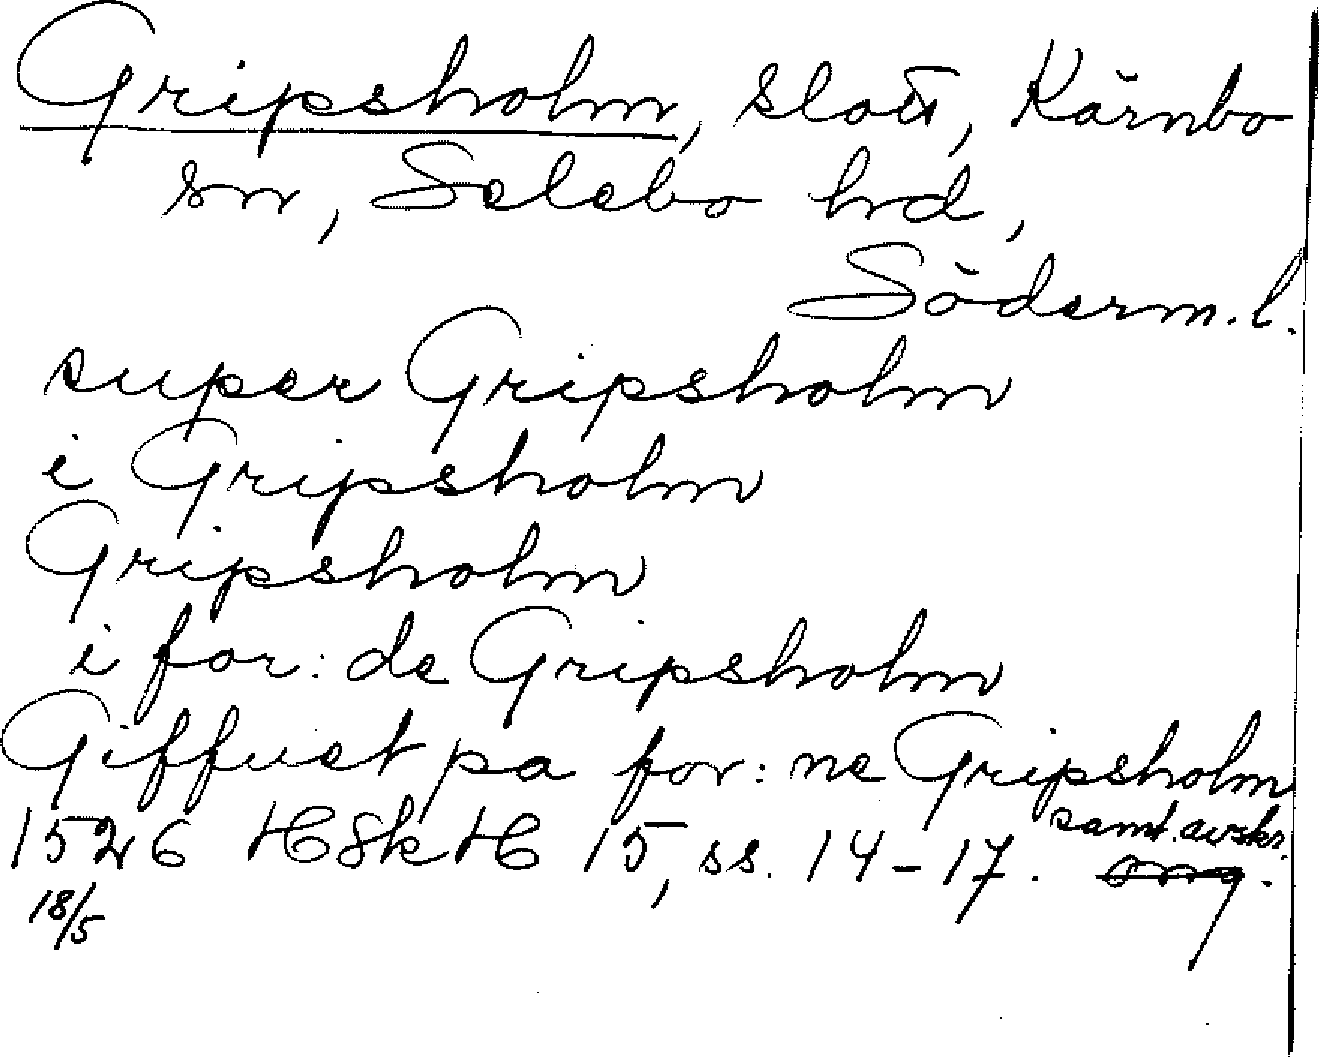 Gripsholm, slott, Kärnbo
sn, Selebo hd,
Söderm. l.
super Gripsholm
i Gripsholm
Gripsholm
i for: de Gripsholm
Giffuet pa for: ne Gripsholm
samt. avskr.
1526 HSkH 15, ss. 14-17. org.
18/5